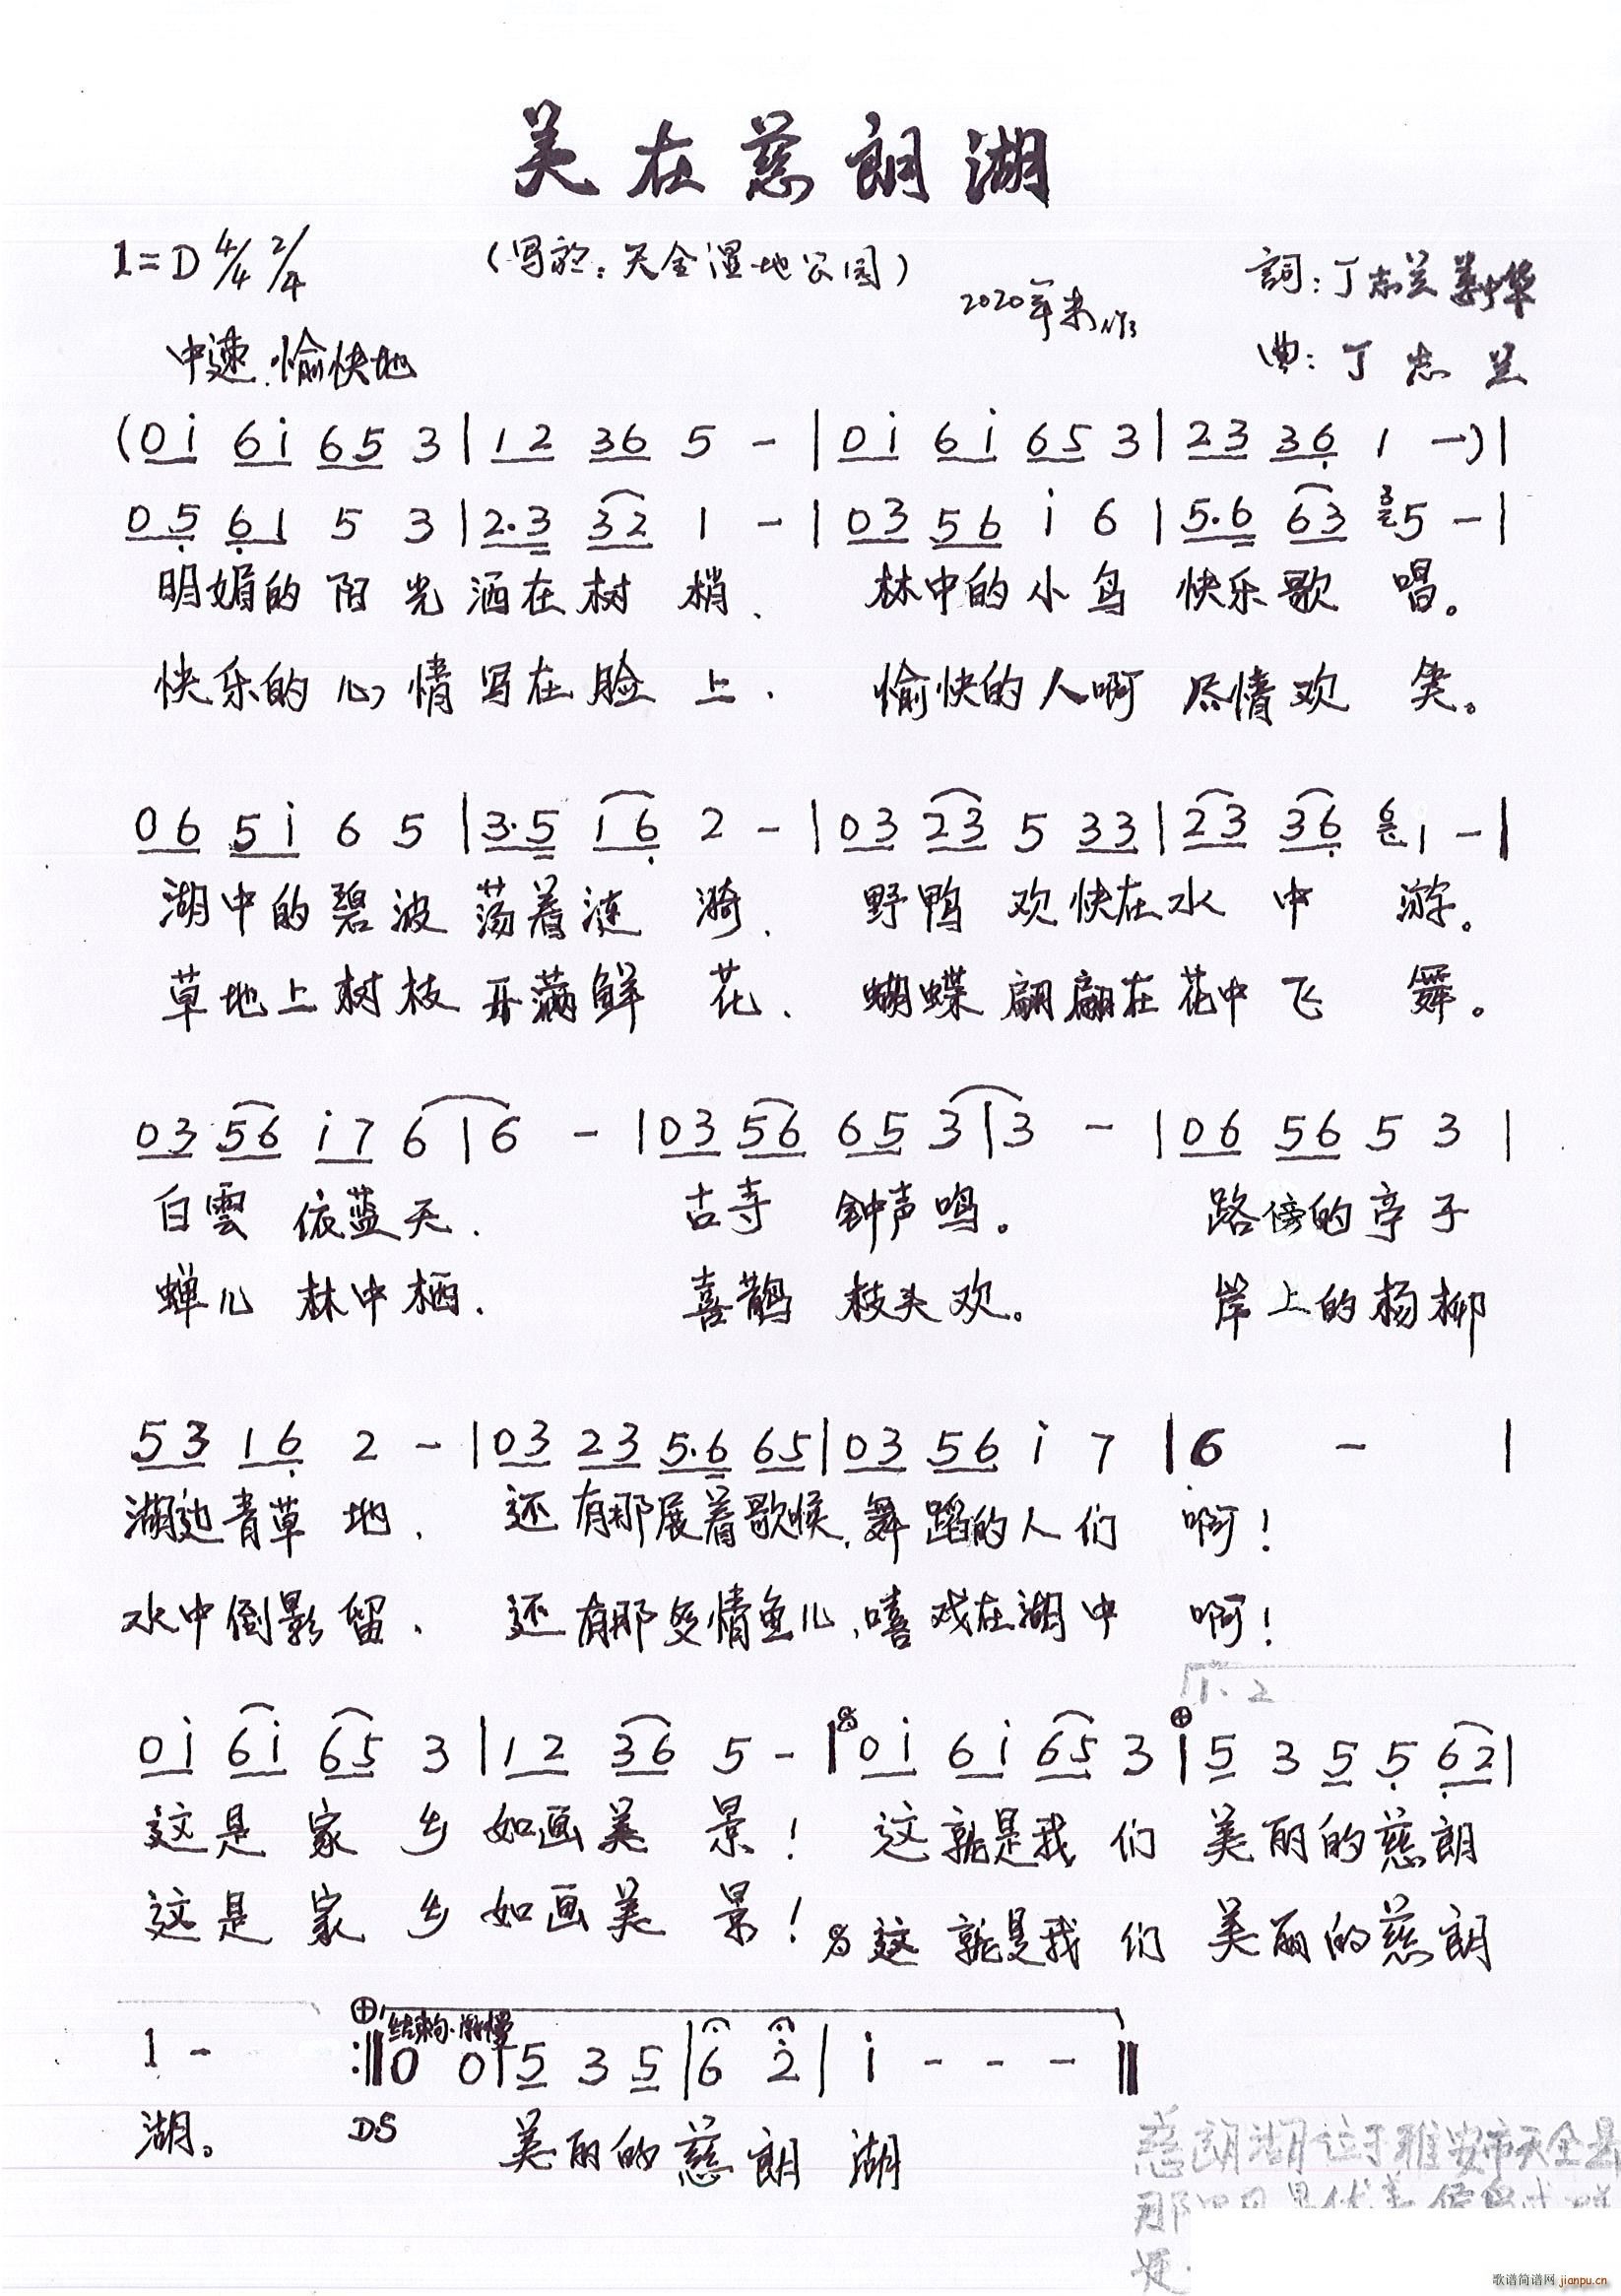 美在慈朗湖
1=D 4/4 2/4
(写於:天全湿地公园)
2020年末作
詞:丁志兰 姜中华
曲:丁志兰
中速.愉快地
(0i 6i 65 3|12 36 5 -|0i 6i 65 3|23 36 1 -)|
05 61 5 3|2.3 32 1 -|03 56 i 6|5.6 63 5 -|
明媚的阳光洒在树梢、林中的小鸟快乐歌唱。
快乐的心情写在脸上.愉快的人啊尽情欢笑。
06 5i 6 5|3.5 16 2 -|03 23 5 33|23 36 1 -|
湖中的碧波荡着涟漪.野鸭欢快在水中游。
草地上树枝开满鲜花、蝴蝶翩翩在花中飞舞。
03 56 i7 6|6 -|03 56 65 3|3 -|06 56 5 3|
白雲依蓝天.古寺钟声鸣。路傍的亭子
蝉儿林中栖.喜鹊枝头欢。岸上的杨柳
53 16 2 -|03 23 5.6 65|03 56 i 7|6 -|
湖边青草地.还有那展着歌喉,舞蹈的人们啊!
水中倒影留、还有那多情鱼儿,嘻戏在湖中啊!
1、2
0i 6i 65 3|12 36 5 -|0i 6i 65 3|5 3 5 5 62|
这是家乡如画美景!这就是我们美丽的慈朗
这是家乡如画美景!这就是我们美丽的慈朗
结束句.渐慢
1 - :‖0 0|5 3 5|6 2|i - - -‖
湖。DS 美丽的慈朗湖
慈朗湖位于雅安市天全县
那
是
歌谱简谱网 jianpu.cn